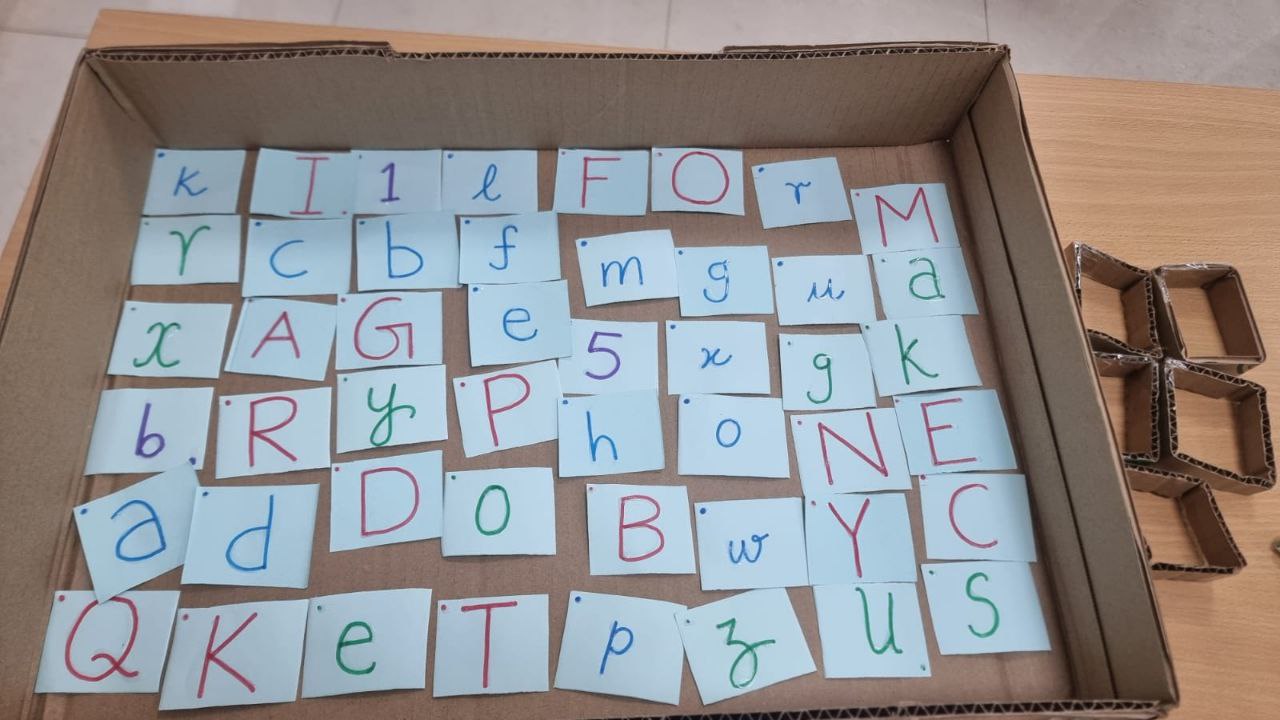 k I 1 l F O r M
r c b f m g u a
x A G e 5 x g k
b R y P h o N E
a d D o B w Y C
Q K e T p z u S